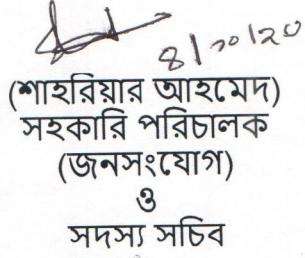 8/10/20
(শাহরিয়ার আহমেদ)
সহকারি পরিচালক
(জনসংযোগ)
ও
সদস্য সচিব